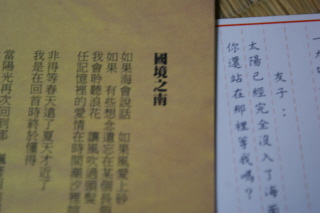 友子：
太陽已經完全沒入了海
你還站在那裡等我嗎？
國境之南
如果海會說話　如果風愛上砂
如果　有些想念遺忘在某個長假
我會聆聽浪花　讓風吹過頭髮
任記憶裡的愛情在時間潮汐裡
非得等春天遠了夏天才近了
我是在回首時終於懂得
當陽光再次回到那